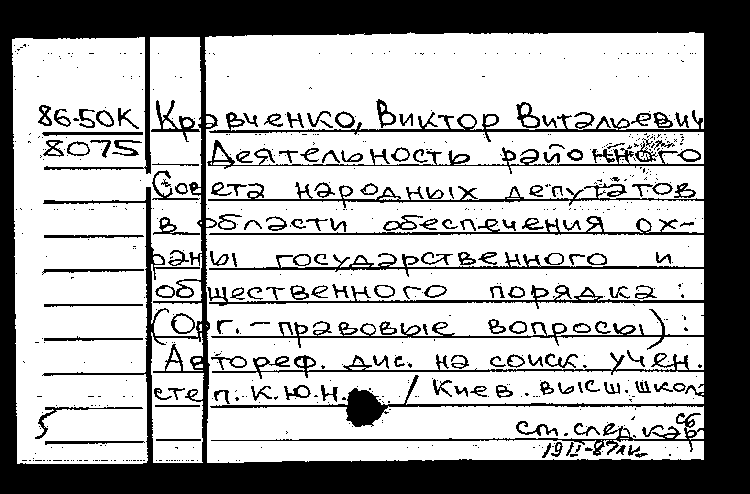 86-50К Кравченко, Виктор Витальевич
8075 Деятельность районного
Совета народных депутатов
в области обеспечения ох-
раны государственного и
общественного порядка :
(Орг.-правовые вопросы) :
Автореф. дис. на соиск. учен.
степ. к.ю.н. / Киев. высш. школа
см. след. кар